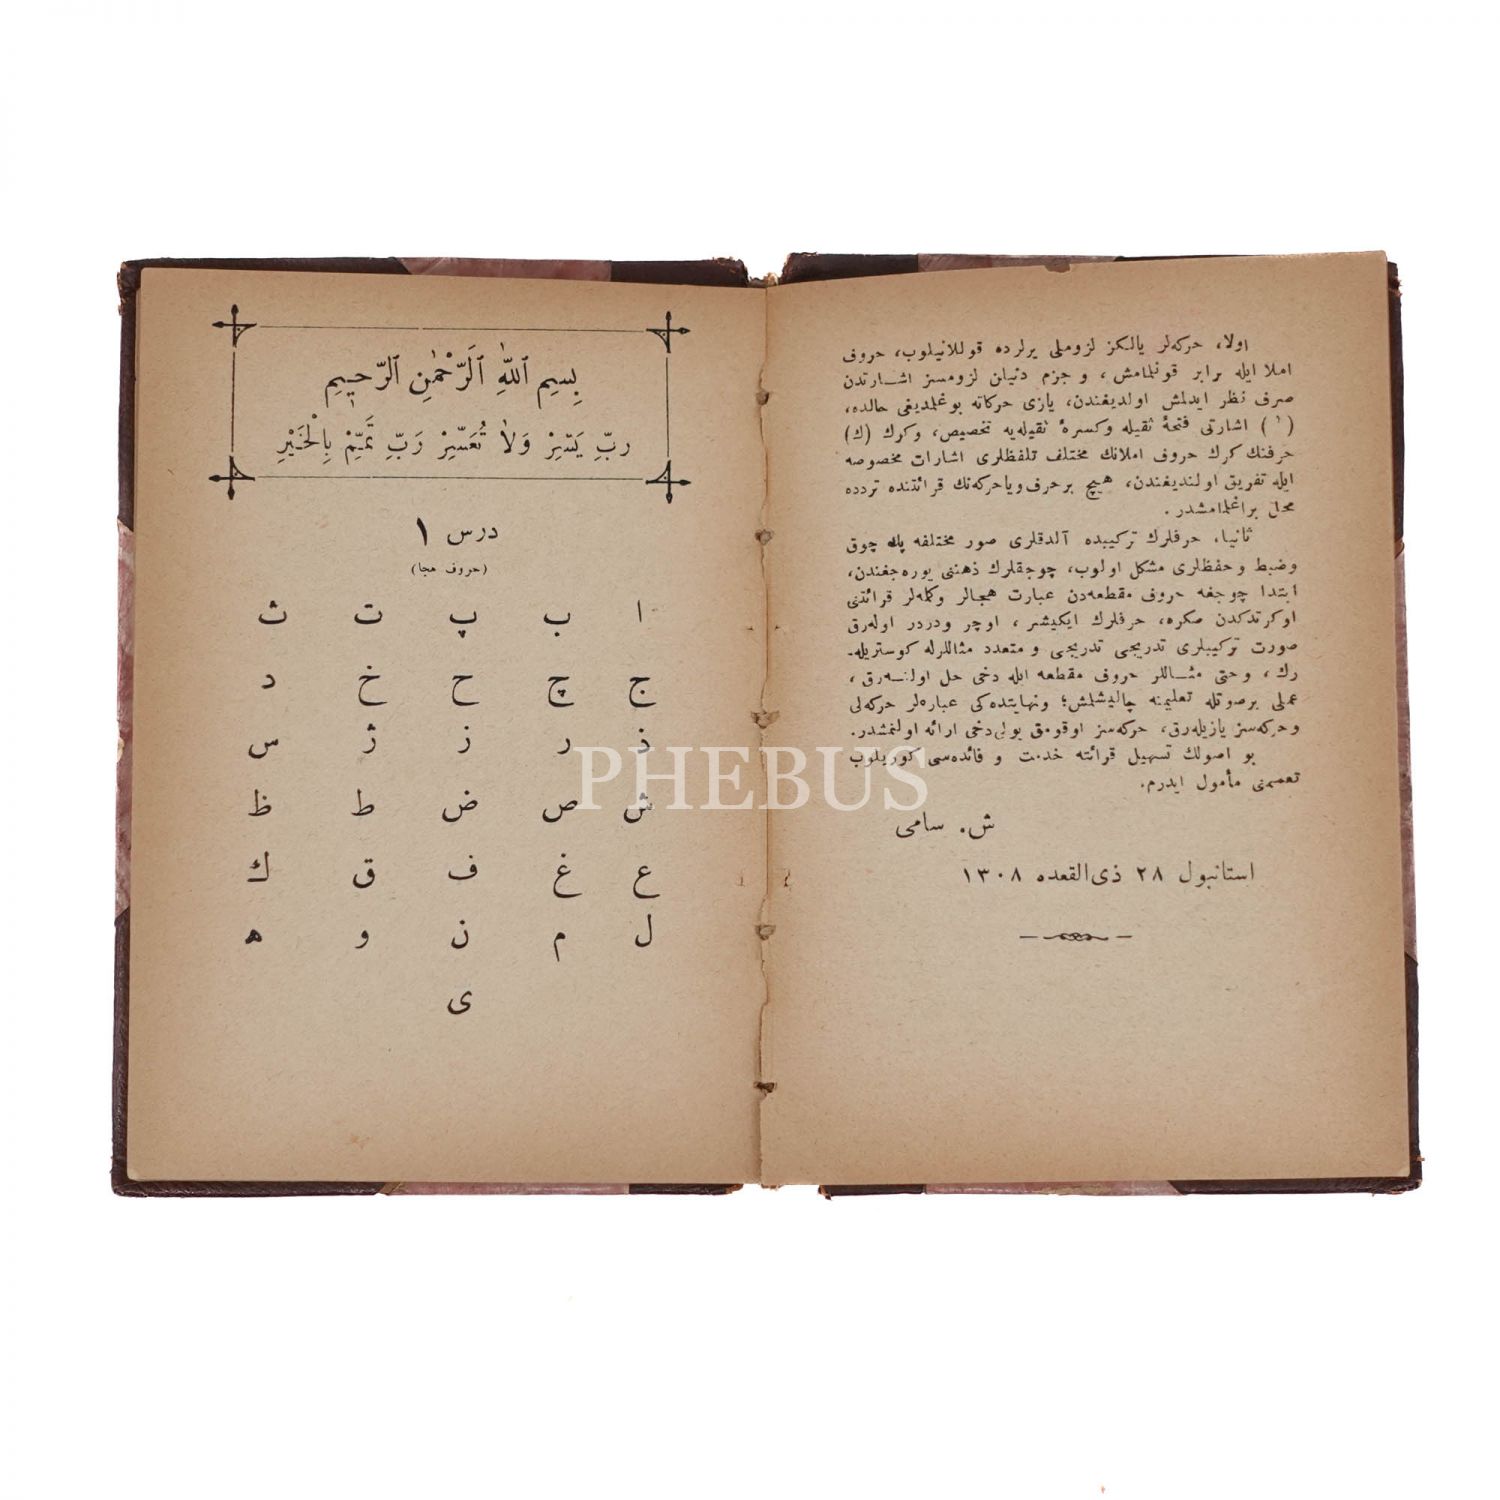 اولا، حركه‌لر يالكز لزوملى يرلرده قوللانيلوب، حروف
املا ايله برابر قونلمامش، و جزم دنيلن لزومسز اشارتدن
صرف نظر ايدلمش اولديغندن، يازى حركاته بوغلمديغى حالده،
( ٰ ) اشارتى فتحهٔ ثقيله وكسرهٔ ثقيله‌يه تخصيص، وكرك (ك)
حرفنك كرك حروف املانك مختلف تلفظلرى اشارات مخصوصه
ايله تفريق اولنديغندن، هيچ برحرف وياحركه‌نك قرائتنده تردده
محل براغلمامشدر.
ثانيا، حرفلرك تركيبده آلدقلرى صور مختلفه پك چوق
وضبط و حفظلرى مشكل اولوب، چوجقلرك ذهنى يوره‌جغندن،
ابتدا چوجغه حروف مقطعه‌دن عبارت هجالر وكله‌لر قرائتنى
اوكرتدكدن صكره، حرفلرك ايكيشر، اوچر ودردر اوله‌رق
صورت تركيبلرى تدريجى تدريجى و متعدد مثاللرله كوستريله-
رك، و حتى مثاللر حروف مقطعه ايله دخى حل اولنه‌رق،
عملى برصوتله تعليمنه چاليشلمش؛ ونهايتده‌كى عباره‌لر حركه‌لى
وحركه‌سز يازيله‌رق، حركه‌سز اوقومق يولى دخى ارائه اولنمشدر.
بو اصولك تسهيل قرائته خدمت و فائده‌سى كوريلوب
تعممنى مأمول ايدرم.
ش. سامى
استانبول ٢٨ ذى‌القعده ١٣٠٨
بِسِيمِ ٱللّٰهِ ٱلرَّحْمٰنِ ٱلرَّحِيمِ
رَبِّ يَسِّرْ وَلَا تُعَسِّرْ رَبِّ تَمِّمْ بِالْخَيْرِ
درس ١
(حروف هجا)
ا ب پ ت ث
ج چ ح خ د
ذ ر ز ژ س
ش ص ض ط ظ
ع غ ف ق ك
ل م ن و ه
ى
PHEBUS